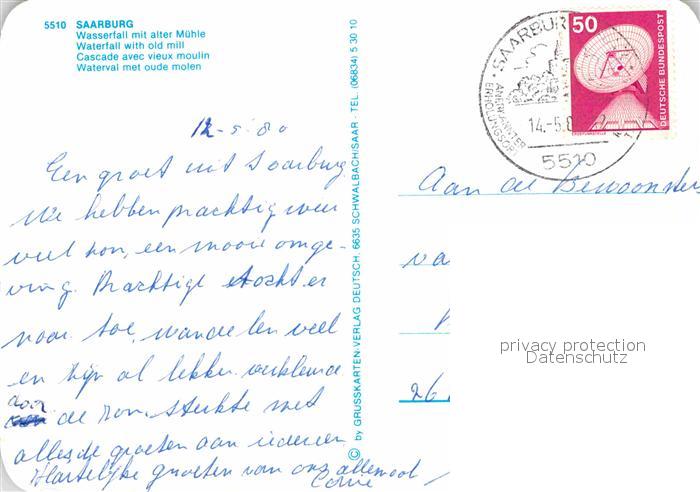 5510 SAARBURG
Wasserfall mit alter Mühle
Waterfall with old mill
Cascade avec vieux moulin
Waterval met oude molen
© by GRUSSKARTEN-VERLAG DEUTSCH, 6635 SCHWALBACH/SAAR · TEL. (06834) 5 30 10
12-5-80
Een groet uit Saarburg
We hebben prachtig weer
veel zon, een mooie omge-
ving. Prachtige tocht er
naar toe, wandelen veel
en zijn al lekker verkleurd
door
de zon. Sterkte met
alles, de groeten aan iedereen
Hartelijke groeten van ons allemaal
Corrie
SAARBURG
ANERKANNTER
ERHOLUNGSORT
14.-5.8
5510
50
DEUTSCHE BUNDESPOST
Aan de Bewoonsters
va
26
privacy protection
Datenschutz